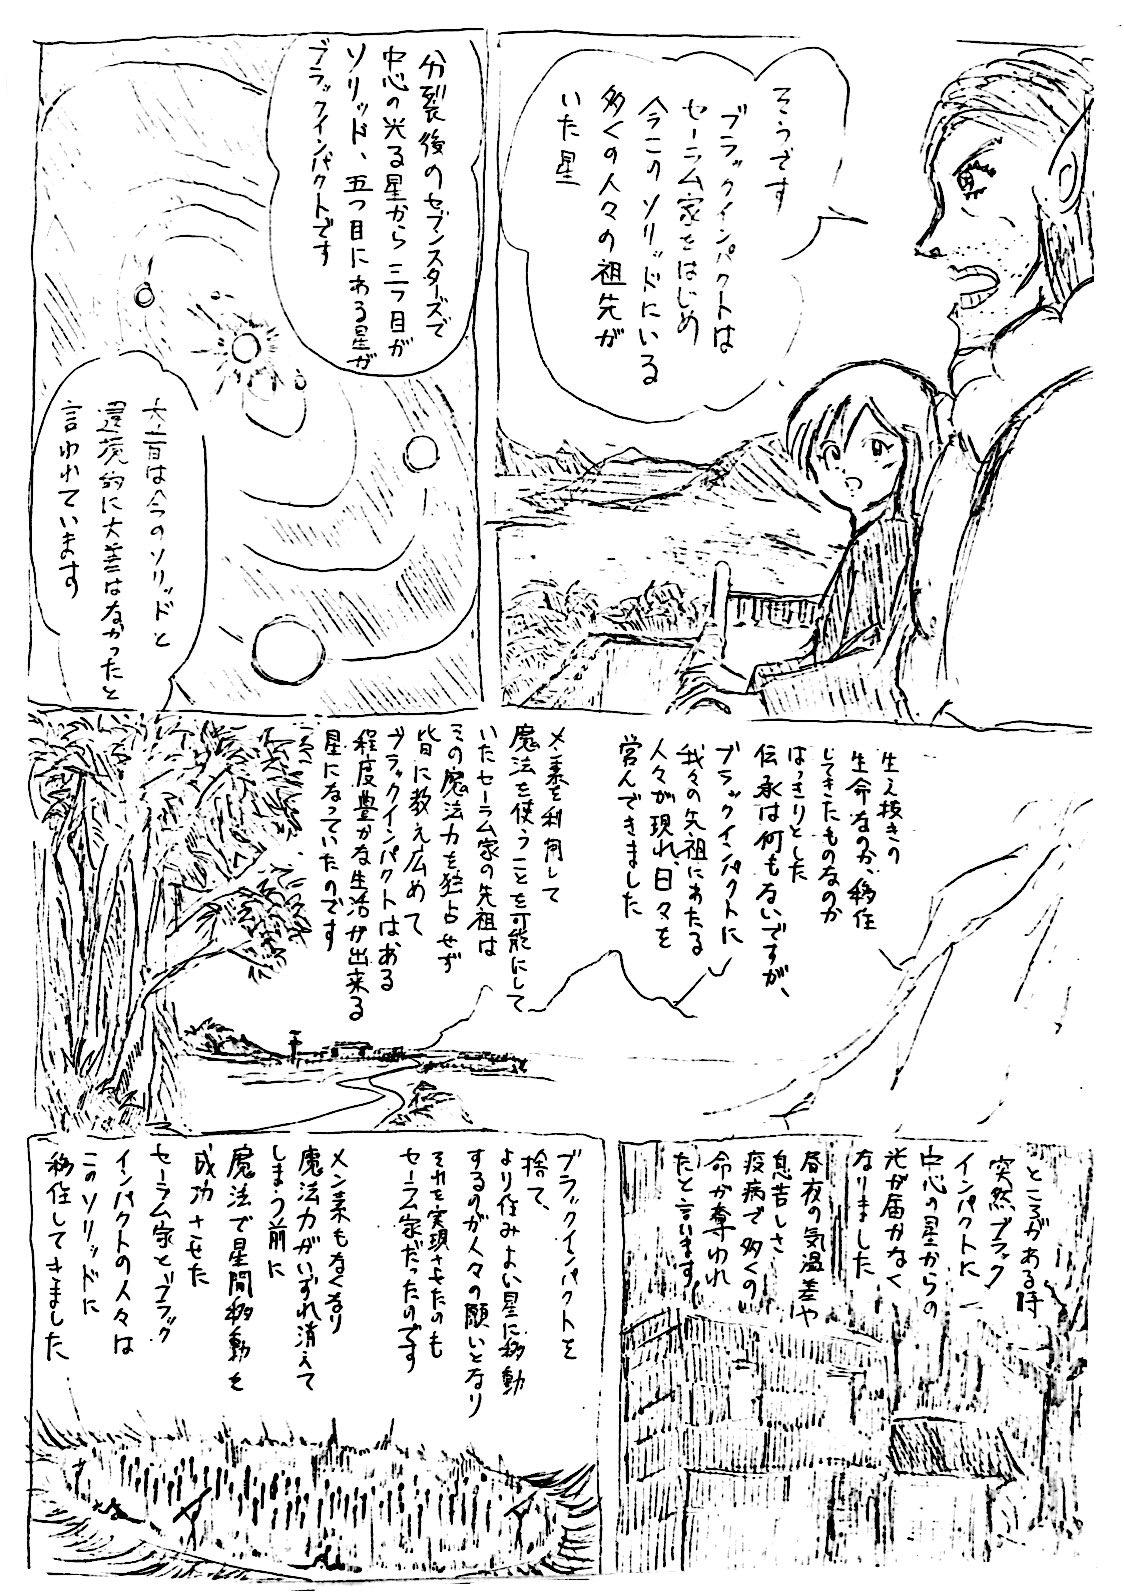 そうです
ブラックインパクトは
セーラム家をはじめ
今このソリッドにいる
多くの人々の祖先が
いた星
分裂後のセブンスターズで
中心の光る星から三つ目が
ソリッド、五つ目にある星が
ブラックインパクトです
大昔は今のソリッドと
環境的に大差はなかったと
言われています
生え抜きの
生命なのか、移住
してきたものなのか
はっきりとした
伝承は何もないですが、
ブラックインパクトに
我々の先祖にあたる
人々が現れ、日々を
営んできました
メン素を利用して
魔法を使うことを可能にして
いたセーラム家の先祖は
その魔法力を独占せず
皆に教え広めて
ブラックインパクトはある
程度豊かな生活が出来る
星になっていたのです
ところがある時
突然ブラック
インパクトに
中心の星からの
光が届かなく
なりました
昼夜の気温差や
息苦しさ
疫病で多くの
命が奪われ
たと言います
ブラックインパクトを
捨て、
より住みよい星に移動
するのが人々の願いとなり
それを実現させたのも
セーラム家だったのです
メン素もなくなり
魔法力がいずれ消えて
しまう前に
魔法で星間移動を
成功させた
セーラム家とブラック
インパクトの人々は
このソリッドに
移住してきました